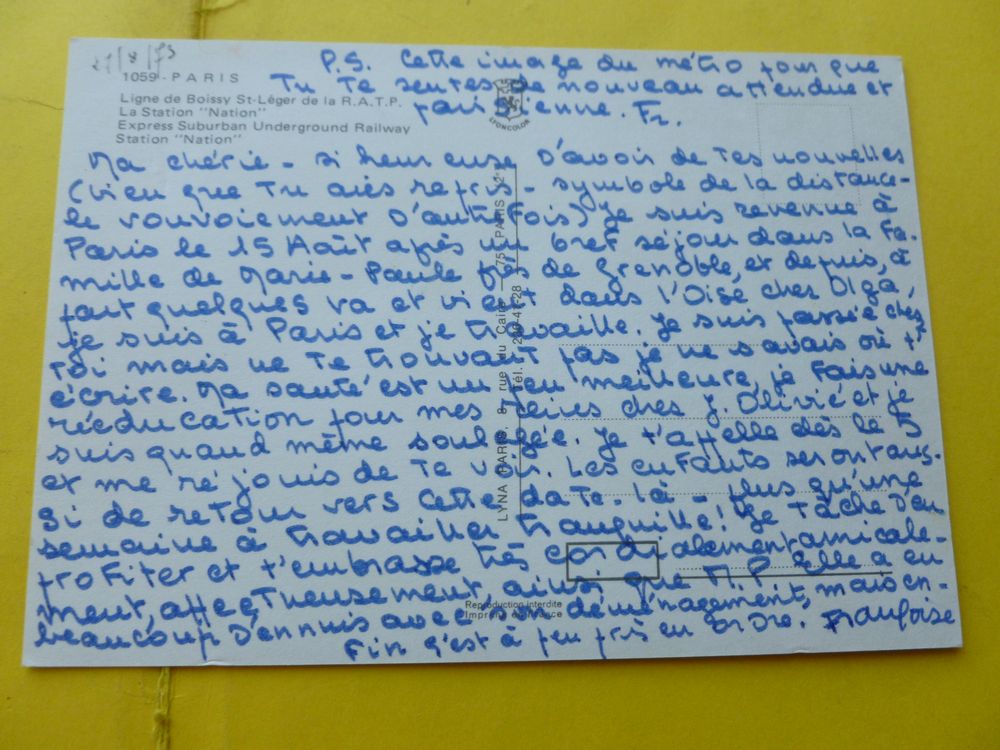 27/8/73
1059 - PARIS
Ligne de Boissy St-Léger de la R.A.T.P.
La Station "Nation"
Express Suburban Underground Railway
Station "Nation"
P.S. Cette image du métro pour que
Tu Te sentes de nouveau attendue et
parisienne. Fr.
LYONCOLOR
Ma chérie - si heureuse D'avoir de Tes nouvelles
(bien que Tu aies repris - symbole de la distance -
le vouvoiement D'autrefois) Je suis revenue à
Paris le 15 Août après un bref séjour dans la fa-
mille de Marie-Paule près de Grenoble, et depuis, à
part quelques va et vient dans l'Oise chez Olga,
je suis à Paris et je travaille. Je suis passée chez
Toi mais ne Te trouvant pas je ne savais où t'
écrire. Ma santé est un peu meilleure, je fais une
rééducation pour mes reins chez J. Olivié et je
suis quand même soulagée. Je t'appelle dès le 5
et me réjouis de Te voir. Les enfants seront aus-
si de retour vers cette date-là - plus qu'une
semaine à travailler tranquille! Je Tâche D'en
profiter et t'embrasse très cordialement, amicale-
ment, affectueusement, ainsi que M.P. Elle a eu
beaucoup D'ennuis avec son déménagement, mais en-
fin c'est à peu près en ordre. Françoise
LYNA PARIS, 8, rue du Caire 75 PARIS 2e
Tél. 236-41-28
Reproduction interdite
Imprimé en France